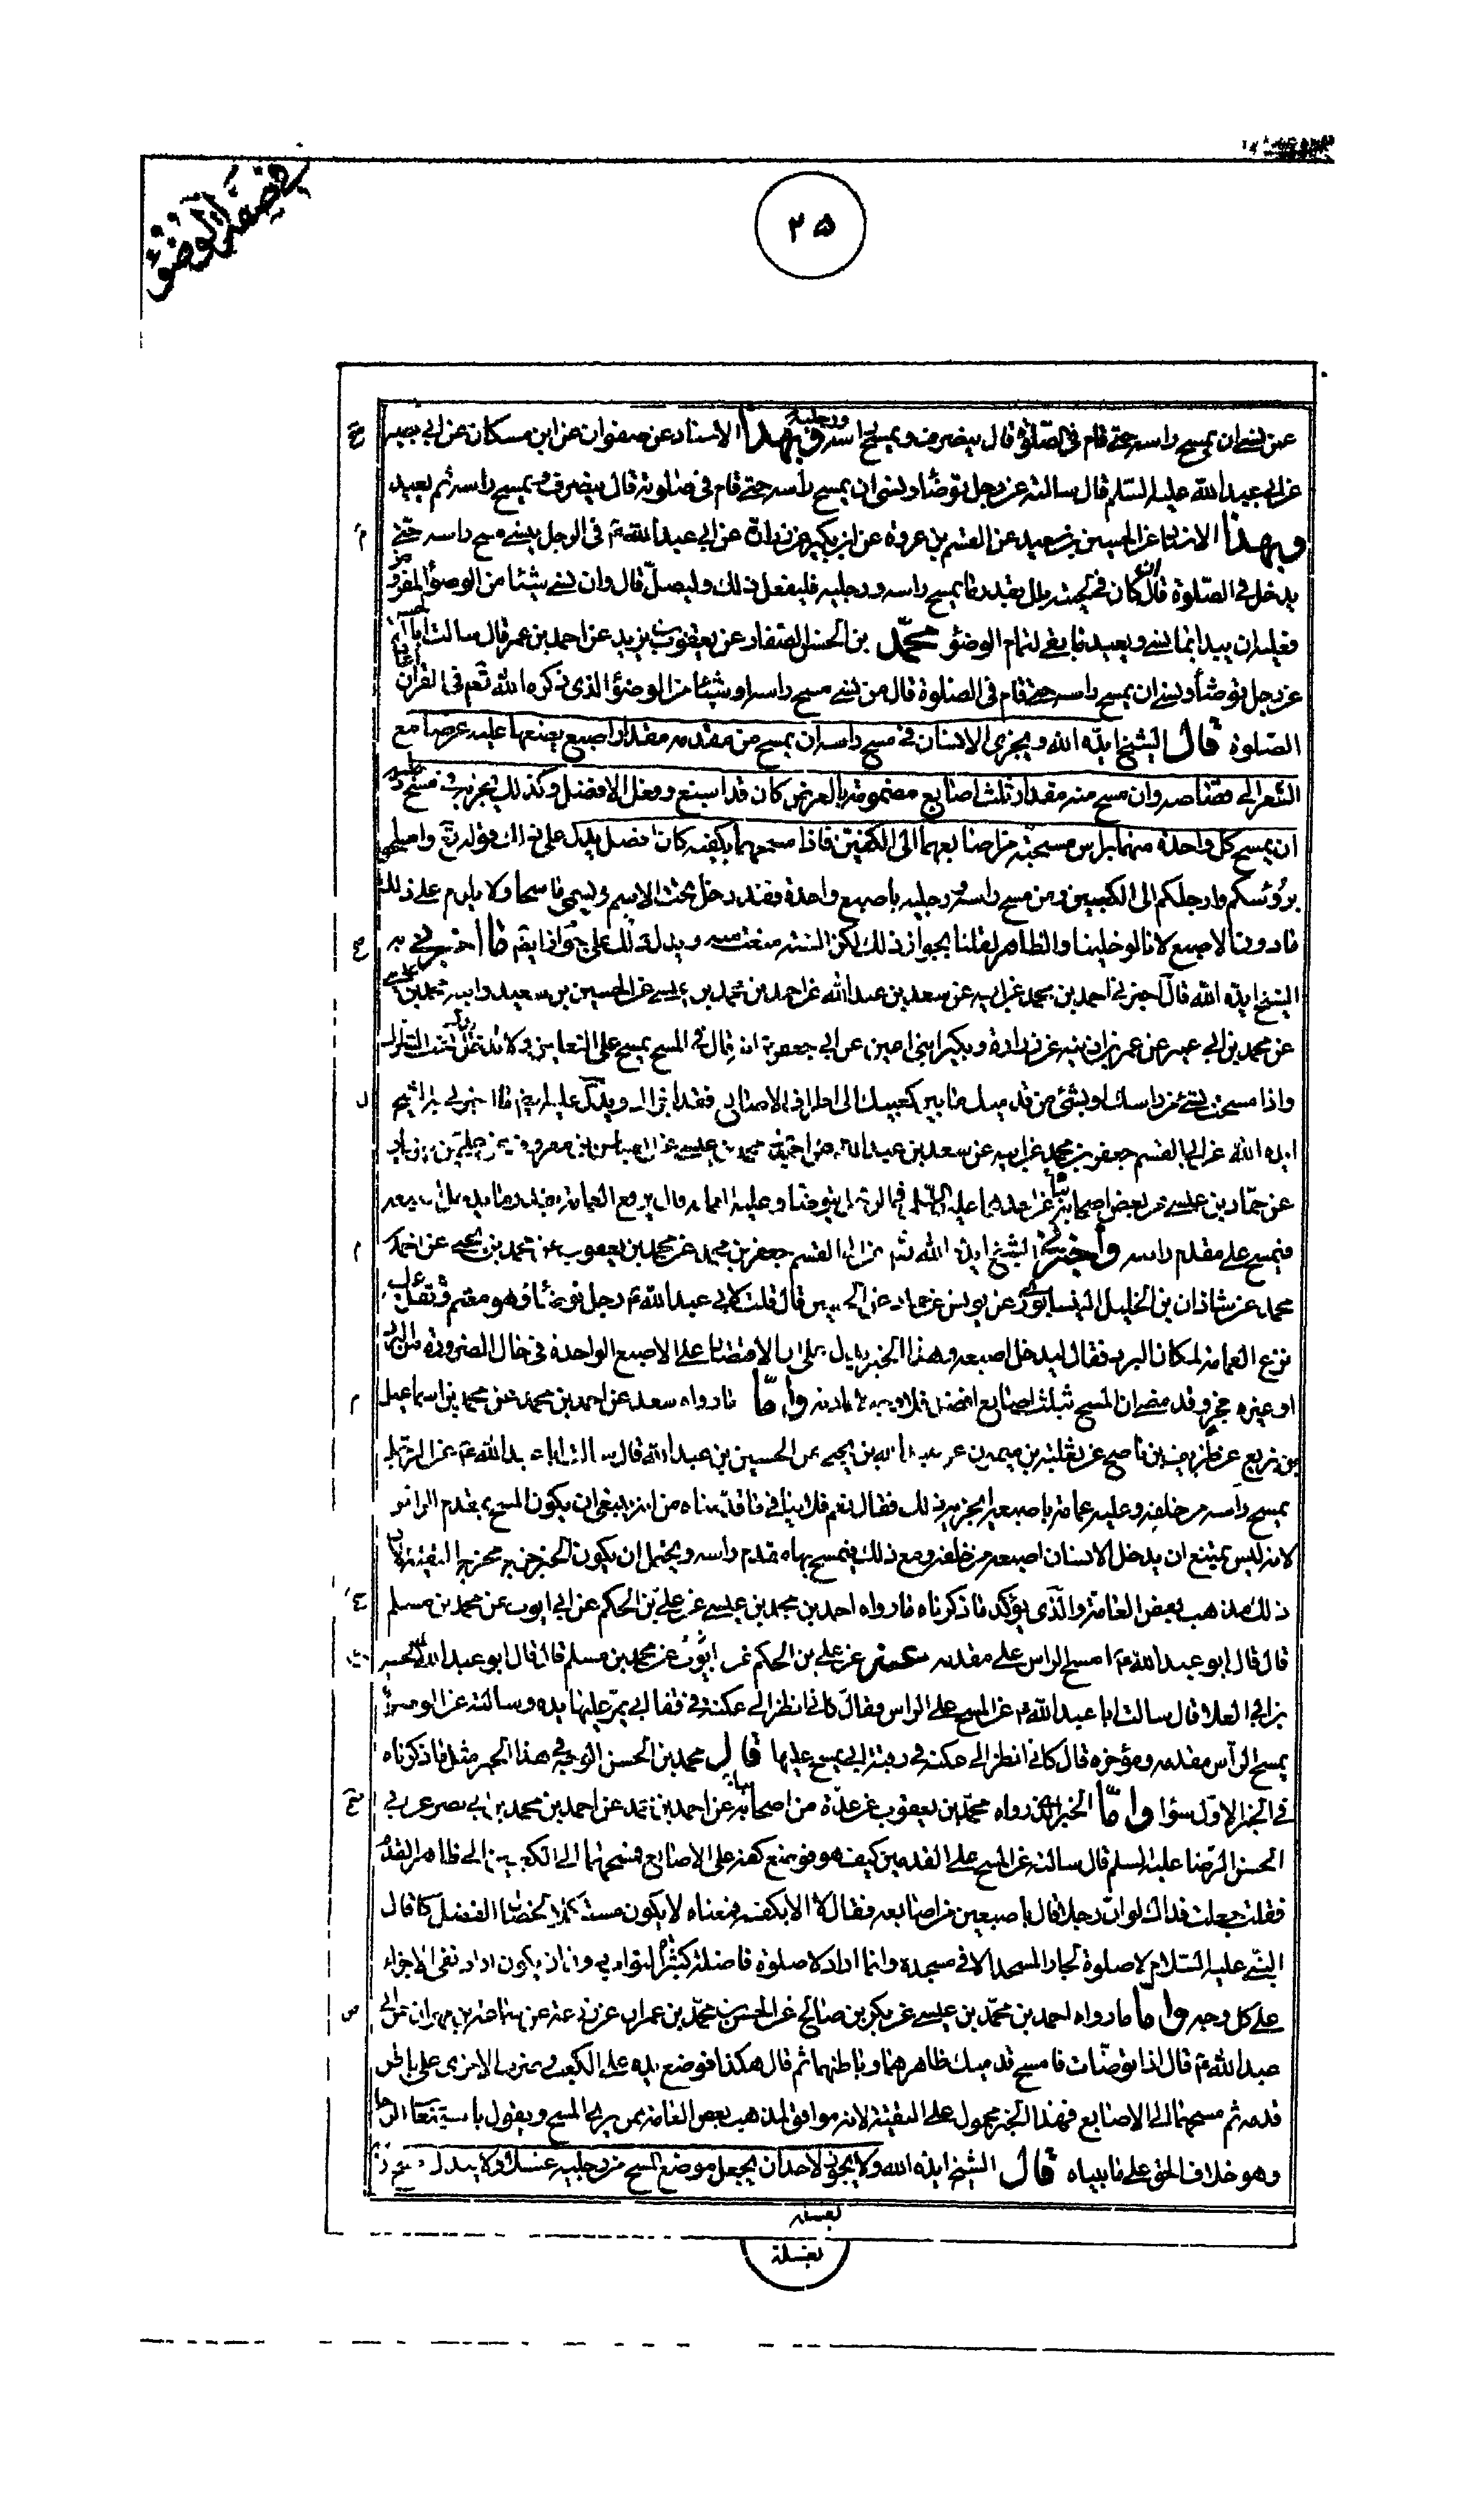 في صفة الوضوء
٢٥
عن نسى ان يمسح راسه حتى قام فى الصلوة قال ينصرف ويمسح راسه ورجليه وبهذا الاسناد عن صفوان عن ابن مسكان عن ابى بصير
عن ابى عبد الله عليه السلم قال سالته عن رجل توضأ ونسى ان يمسح راسه حتى قام فى صلوته قال ينصرف ويمسح راسه ثم يعيد
وبهذا الاسناد عن الحسين بن سعيد عن القسم بن عروة عن ابن بكير عن زرارة عن ابى عبد الله ع فى الرجل ينسى مسح راسه حتى
يدخل فى الصلوة قال ان كان فى لحيته بلل بقدر ما يمسح راسه ورجليه فليفعل ذلك وليصل قال وان نسى شيئا من الوضوء المفروض
فعليه ان يبدا بما نسى ويعيد ما بقى لتمام الوضوء محمد بن الحسن الصفار عن يعقوب بن يزيد عن احمد بن عمر قال سالت ابا الحسن
عن رجل توضأ ونسى ان يمسح راسه حتى قام فى الصلوة قال من نسى مسح راسه او شيئا من الوضوء الذى ذكره الله تعم فى القرآن اعاد
الصلوة قال الشيخ ايده الله ويجزى الانسان فى مسح راسه ان يمسح من مقدمه مقدار اصبع يضعها عليه عرضها مع
الشعر الى قصاصه وان مسح منه مقدار ثلث اصابع مضمومة بالعرض كان قد اسبغ وفعل الافضل وكذلك يجزيه فى مسح رجليه
ان يمسح كل واحدة منهما براس مسبحته من اصابعهما الى الكعبين فاذا مسحهما بكفيه كان افضل يدل على ذلك قوله تع وامسحوا
برؤسكم وارجلكم الى الكعبين ومن مسح راسه ورجليه باصبع واحدة فقد دخل تحت الاسم ويسمى ماسحا ولا يلزم على ذلك
مادون الاصبع لانا لو خلينا والظاهر لقلنا بجواز ذلك لكن السنة منعت منه ويدل على جوازه ايضا ما اخبرنى به
الشيخ ايده الله قال اخبرنى احمد بن محمد عن ابيه عن سعد بن عبد الله عن احمد بن محمد بن عيسى عن الحسين بن سعيد وابيه محمد بن عيسى
عن محمد بن ابى عمير عن عمر بن اذينه عن زرارة وبكير ابنى اعين عن ابى جعفر ع انه قال فى المسح يمسح على النعلين ولا تدخل يدك تحت الشراك
واذا مسحت بشىء من راسك او بشىء من قدميك ما بين كعبيك الى اطراف الاصابع فقد اجزأك ويدل عليه ايضا ما اخبرنى به الشيخ
ايده الله عن ابى القسم جعفر بن محمد عن ابيه عن سعد بن عبد الله عن احمد بن محمد بن عيسى عن العباس بن معروف عن
عن حماد بن عيسى عن بعض اصحابه عن احدهما عليه السلم فى الرجل يتوضأ وعليه العمامة قال يرفع العمامة بقدر ما يدخل اصبعه
فيمسح على مقدم راسه واخبرنى الشيخ ايده الله تع عن ابى القسم جعفر بن محمد عن محمد بن يعقوب عن محمد بن يحيى عن احمد بن
محمد عن شاذان بن الخليل النيسابورى عن يونس عن حماد عن الحسين قال قلت لابى عبد الله ع رجل توضأ وهو معتم وثقل عليه
نزع العمامة لمكان البرد فقال ليدخل اصبعه وهذا الخبر يدل على ان الاقتصار على الاصبع الواحدة فى حال الضرورة من البرد
او غيره مجز وقد مضى ان المسح بثلث اصابع افضل واما مارواه سعد عن احمد بن محمد عن محمد بن اسماعيل
بن بزيع عن ظريف بن ناصح عن ثعلبة بن ميمون عن عبد الله بن يحيى عن الحسين بن عبد الله قال سالت ابا عبد الله ع عن الرجل
يمسح راسه من خلفه وعليه عمامة باصبعه ايجزيه ذلك فقال نعم فلا ينافى ما قدمناه من انه ينبغى ان يكون المسح بمقدم الراس
لانه ليس يمتنع ان يدخل الانسان اصبعه من خلفه ومع ذلك فيمسح بها مقدم راسه ويحتمل ان يكون الخبر خرج مخرج التقية لان
ذلك مذهب بعض العامة والذى يؤكد ما ذكرناه مارواه احمد بن محمد بن عيسى عن على بن الحكم عن ابى ايوب عن محمد بن مسلم
قال قال ابو عبد الله ع امسح الراس على مقدمه عنه عن على بن الحكم عن ابى ايوب عن محمد بن مسلم قال قال ابو عبد الله الحسين
بن ابى العلا قال سالت ابا عبد الله ع عن المسح على الراس فقال كانى انظر الى عكنة فى قفا ابى يمر عليها يده وسالته عن الوضوء
يمسح الرأس مقدمه ومؤخره قال كانى انظر الى عكنة فى رقبة ابى يمسح عليها قال محمد بن الحسن الوجه فى هذا الخبر مثل ما ذكرناه
فى الخبر الاول سواء واما الخبر الذى رواه محمد بن يعقوب عن عدة من اصحابنا عن احمد بن محمد عن احمد بن محمد بن ابى نصر عن ابى
الحسن الرضا عليه السلم قال سالته عن المسح على القدمين كيف هو فوضع كفه على الاصابع فمسحهما الى الكعبين الى ظاهر القدم
فقلت جعلت فداك لو ان رجلا قال باصبعين من اصابعه فقال لا الا بكفه فمعناه لا يكون مستكملا لخصال الفضل كما قال
النبى عليه السلام لا صلوة لجار المسجد الا فى مسجده وانما اراد لا صلوة فاضلة كثيرة الثواب دون ان يكون اراد نفى الاجزاء
على كل وجه واما مارواه احمد بن محمد بن عيسى عن بكر بن صالح عن الحسن بن محمد بن عمران عن زرعة عن سماعة بن مهران عن ابى
عبد الله ع قال اذا توضات فامسح قدميك ظاهرهما وباطنهما ثم قال هكذا فوضع يده على الكعب وضرب الاخرى على باطن
قدمه ثم مسحهما الى الاصابع فهذا الخبر محمول على التقية لانه موافق لمذهب بعض العامة ممن يرى المسح ويقول باستيعاب الرجل
وهو خلاف الحق على ما بيناه قال الشيخ ايده الله ولا يجوز لاحد ان يجعل موضع المسح من رجليه غسلا ولا يبدل مسح
بغسله
بغسله